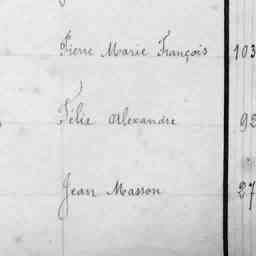 Pierre Marie François 103
Félix Alexandre 92
Jean Masson 27